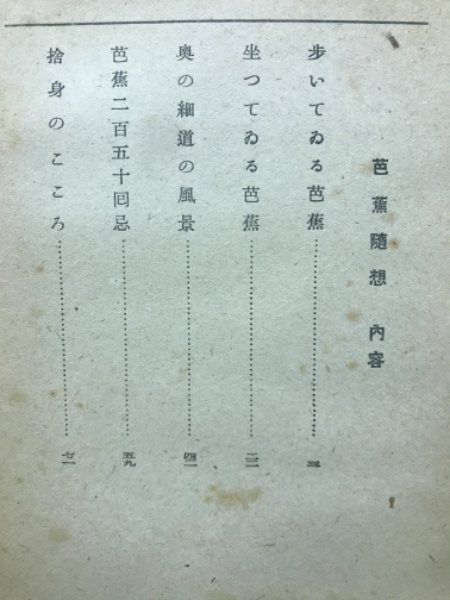 芭蕉隨想 內容
步いてゐる芭蕉 三
坐つてゐる芭蕉
奥の細道の風景
芭蕉二百五十囘忌 五九
捨身のこころ 七一